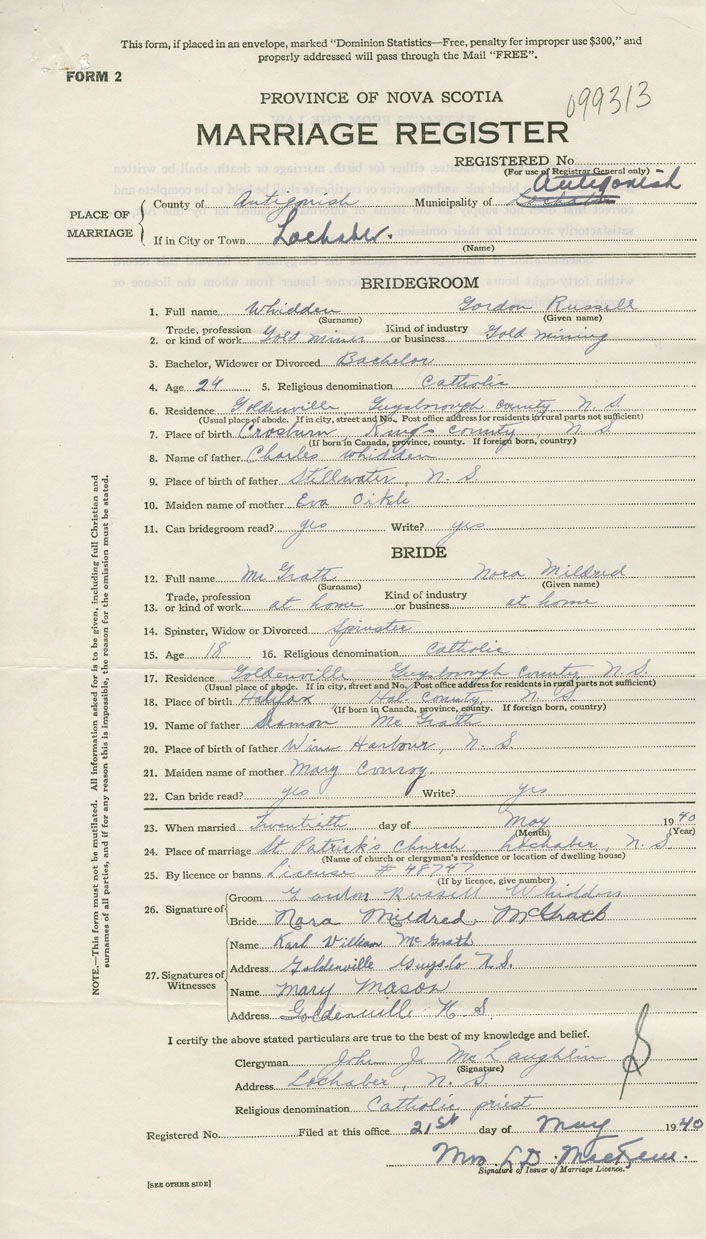 This form, if placed in an envelope, marked "Dominion Statistics—Free, penalty for improper use $300," and
properly addressed will pass through the Mail "FREE".
FORM 2
PROVINCE OF NOVA SCOTIA
099313
MARRIAGE REGISTER
REGISTERED No.
(For use of Registrar General only)
PLACE OF MARRIAGE
County of Antigonish Municipality of Lochaber Antigonish
If in City or Town Lochaber.
(Name)
BRIDEGROOM
1. Full name Whidden Gordon Russell
(Surname) (Given name)
2. Trade, profession or kind of work Gold miner Kind of industry or business Gold mining
3. Bachelor, Widower or Divorced Bachelor
4. Age 24 5. Religious denomination Catholic
6. Residence Goldenville Guysborough County, N. S.
(Usual place of abode. If in city, street and No. Post office address for residents in rural parts not sufficient)
7. Place of birth Crosburn Kings County N S
(If born in Canada, province, county. If foreign born, country)
8. Name of father Charles Whidden
9. Place of birth of father Stillwater, N. S.
10. Maiden name of mother Eva Oikle
11. Can bridegroom read? yes Write? yes
BRIDE
12. Full name Mc Grath Nora Mildred
(Surname) (Given name)
13. Trade, profession or kind of work at home Kind of industry or business at home
14. Spinster, Widow or Divorced Spinster
15. Age 18 16. Religious denomination Catholic
17. Residence Goldenville Guysborough County N. S.
(Usual place of abode. If in city, street and No. Post office address for residents in rural parts not sufficient)
18. Place of birth Halifax Hal. County, N. S.
(If born in Canada, province, county. If foreign born, country)
19. Name of father Damon Mc Grath
20. Place of birth of father Wine Harbour, N. S.
21. Maiden name of mother Mary Conroy
22. Can bride read? yes Write? yes
23. When married Twentieth day of May 1940
(Month) (Year)
24. Place of marriage St Patrick's Church, Lochaber, N. S
(Name of church or clergyman's residence or location of dwelling house)
25. By licence or banns License # 48747
(If by licence, give number)
26. Signature of Groom Gordon Russell Whidden
Bride Nora Mildred McGrath
27. Signatures of Witnesses
Name Karl William McGrath
Address Goldenville Guys. Co N.S.
Name Mary Mason
Address Goldenville N. S.
I certify the above stated particulars are true to the best of my knowledge and belief.
Clergyman John J. Mc Laughlin
(Signature)
Address Lochaber, N. S.
Religious denomination Catholic priest
Registered No. Filed at this office 21st day of May 1940
Mrs. L D.
Signature of Issuer of Marriage Licence.
[SEE OTHER SIDE]
NOTE.—This form must not be mutilated. All information asked for is to be given, including full Christian and
surnames of all parties, and if for any reason this is impossible, the reason for the omission must be stated.